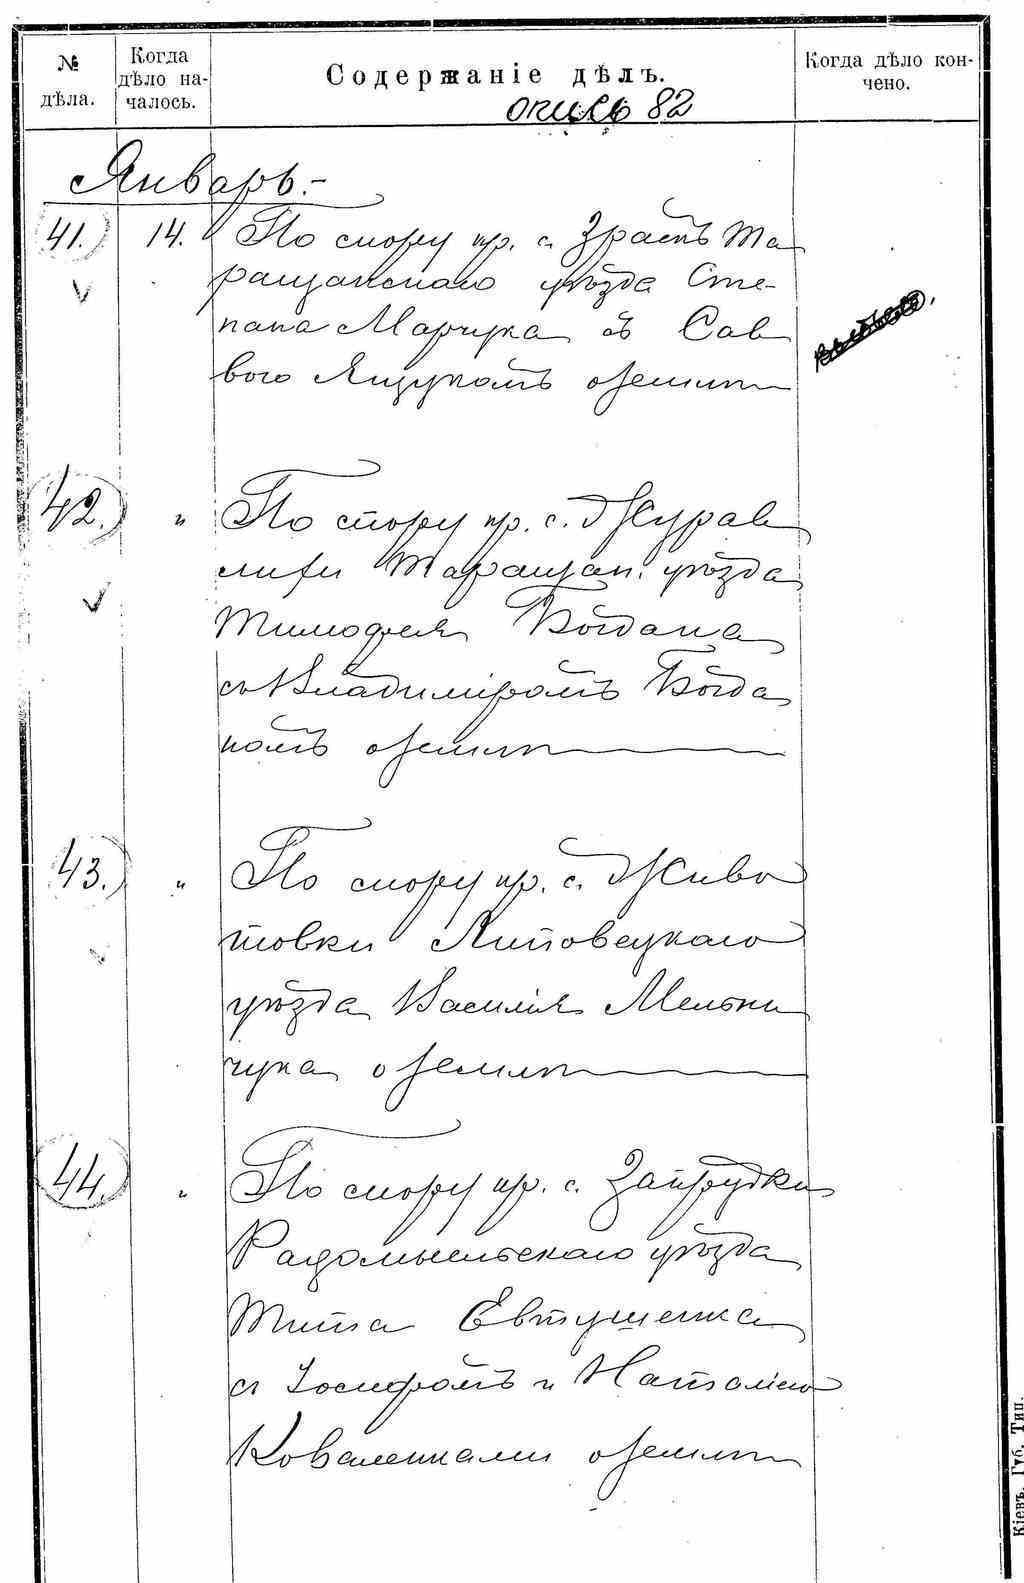 № дѣла.
Когда дѣло на-
чалось.
Содержаніе дѣлъ.
Когда дѣло кон-
чено.
опись 82
Январь.-
41. 14. По спору кр. с. Зраекъ Та
ращанскаго уѣзда Сте-
пана Марчука съ Сав
вою Ящукомъ о землѣ
42. " По спору кр. с. Журав
лихи Таращан. уѣзда
Тимофея Богдана
съ Владиміромъ Богда
номъ о землѣ
43. " По спору кр. с. Живо
товки Липовецкаго
уѣзда Василія Мельни
чука о землѣ
44. " По спору кр. с. Запрудки
Радомысльскаго уѣзда
Тита Евтушенка
съ Іосифомъ и Наталіею
Коваленками о землѣ
Кіевъ. Губ. Тип.